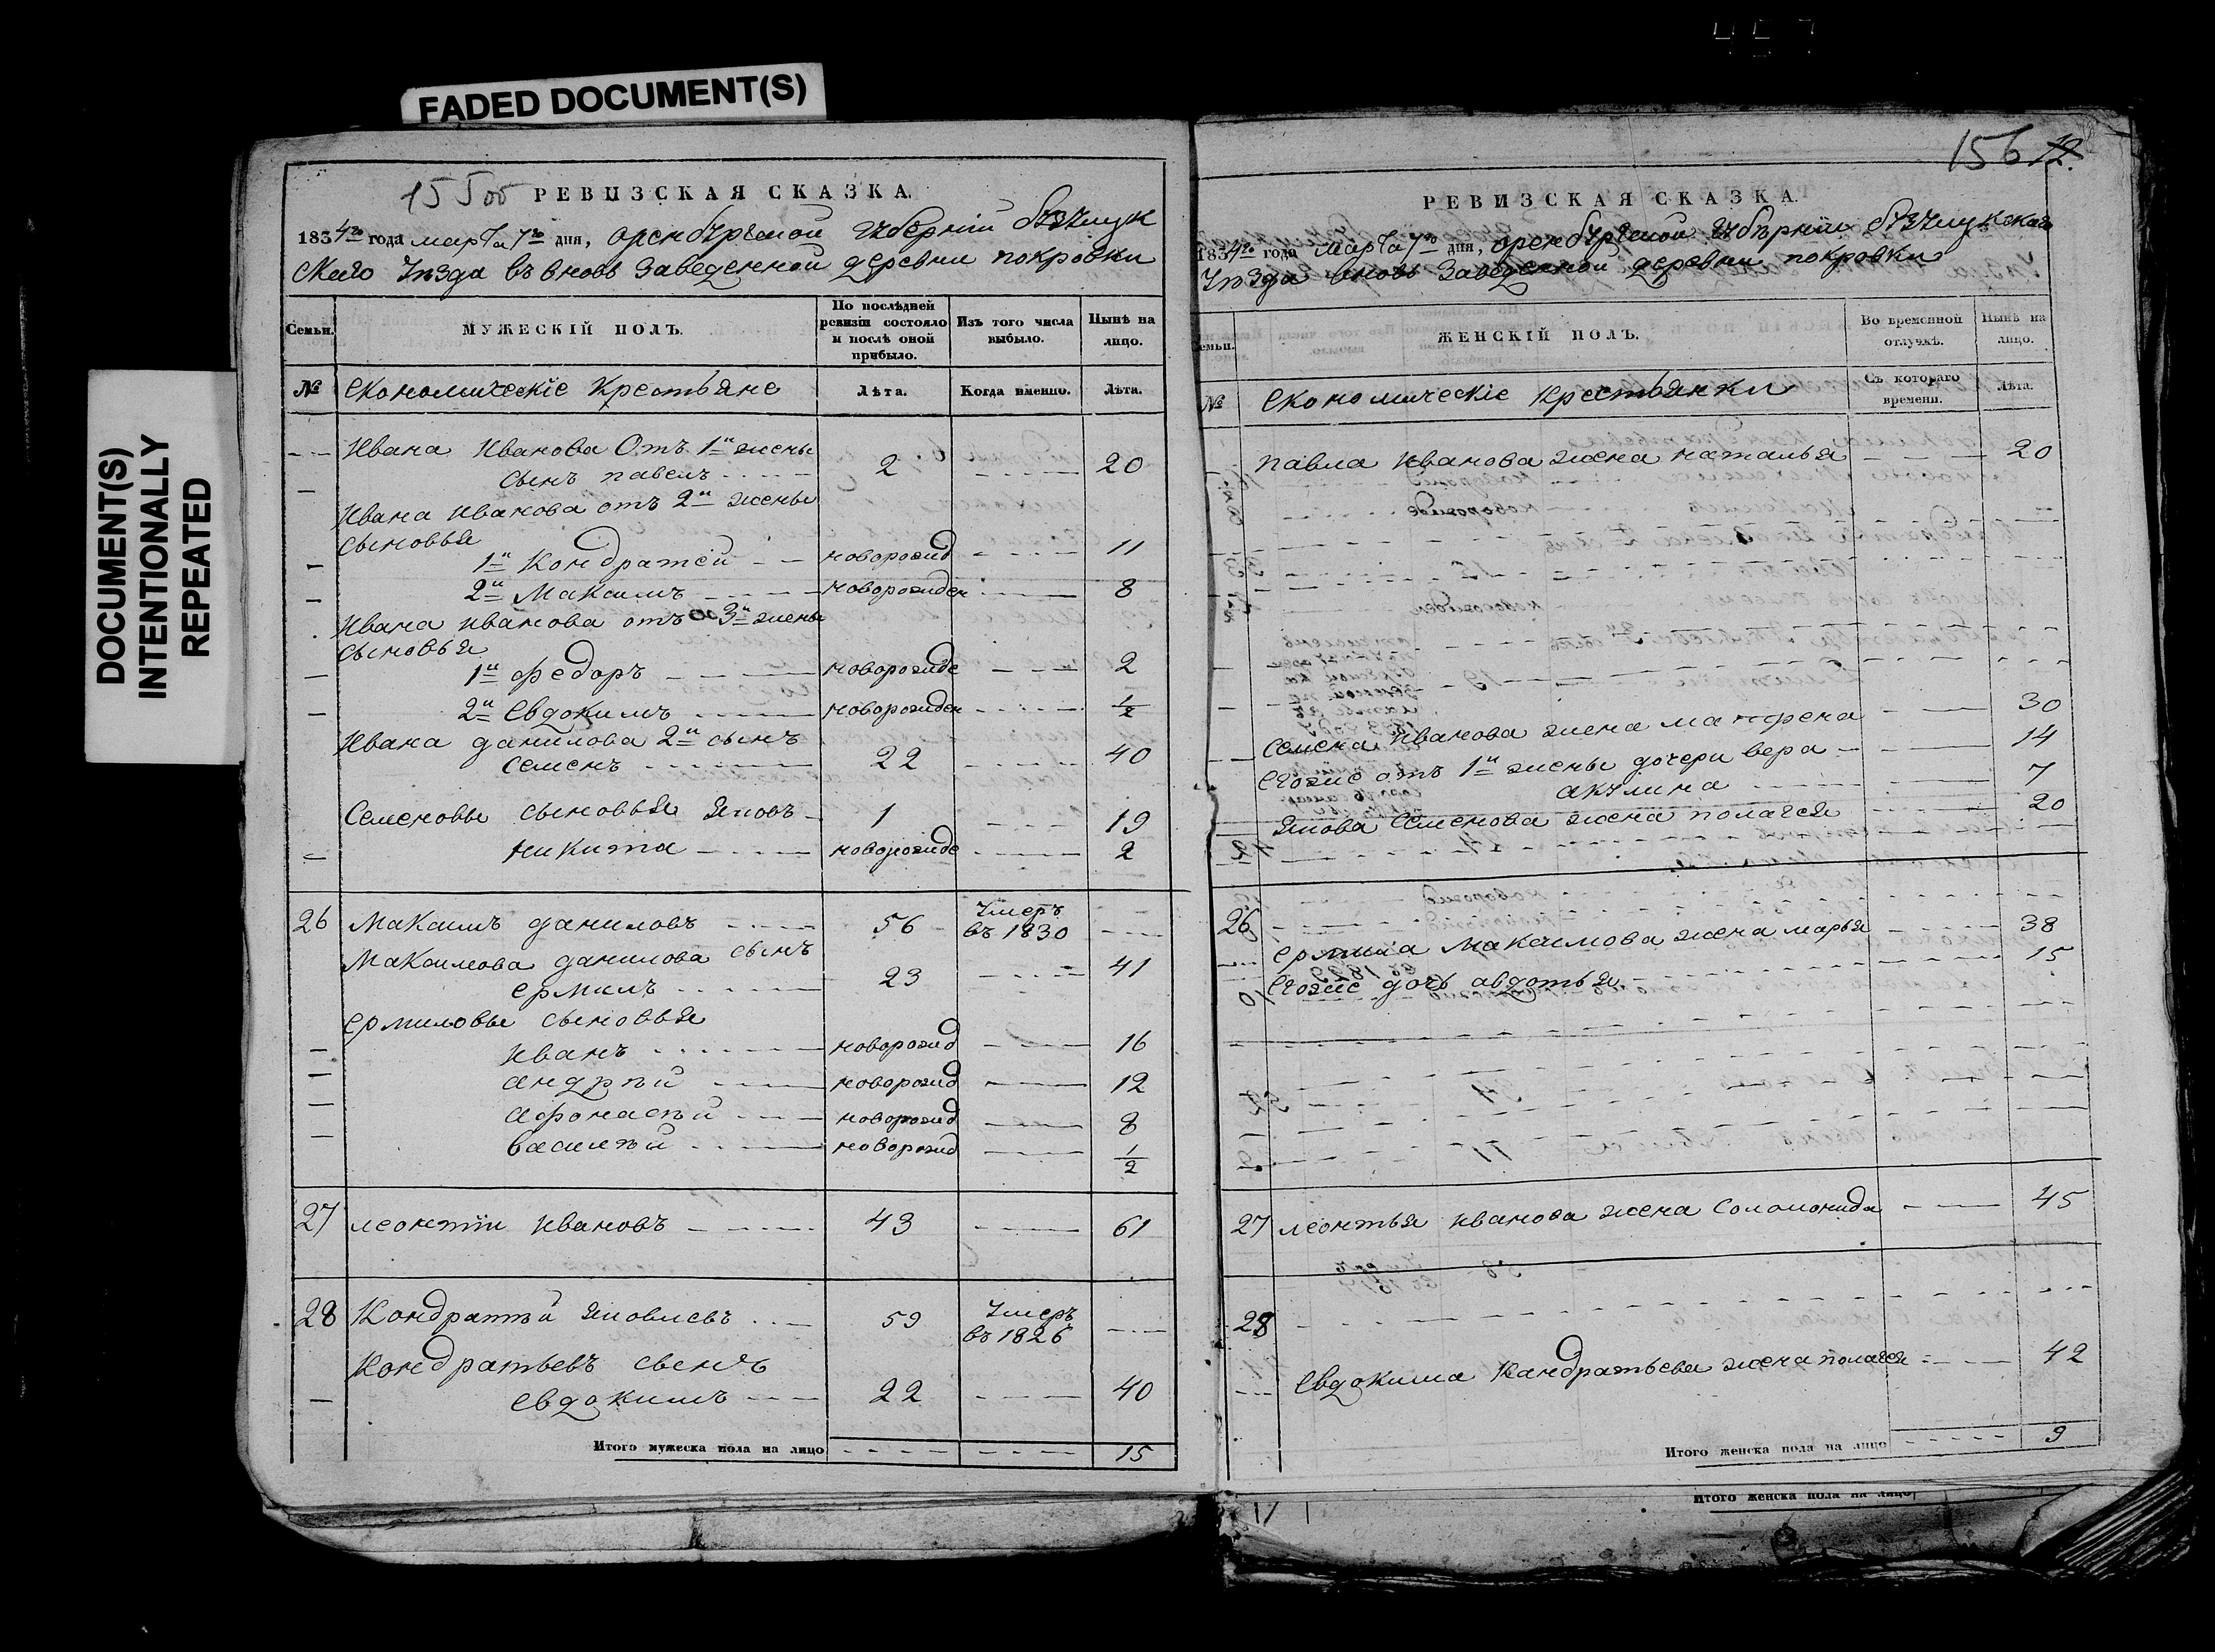 FADED DOCUMENT(S)
DOCUMENT(S)
INTENTIONALLY
REPEATED
РЕВИЗСКАЯ СКАЗКА.
1834го года марта 7го дня, оренбургской губернии бузулук
скаго уезда въ вновь заведенной деревни покровки
Семьи. МУЖЕСКІЙ ПОЛЪ. По послѣдней ревизіи состояло и послѣ оной прибыло. Изъ того числа выбыло. Нынѣ на лицо.
№ економическіе крестьяне Лѣта. Когда именно. Лѣта.
Ивана Иванова отъ 1й жены
сынъ павелъ 2 20
Ивана Иванова отъ 2й жены
сыновья
1й Кондратей новорожд 11
2й Максимъ новорожден 8
Ивана иванова отъ 3й жены
сыновья
1й федоръ новорожде 2
2й Евдокимъ новорожден 1/2
Ивана данилова 2й сынъ
семенъ 22 40
Семеновы сыновья яковъ 1 19
никита новорожде 2
26 Максимъ даниловъ 56 умеръ въ 1830
Максимова данилова сынъ
ермилъ 23 41
ермиловы сыновья
иванъ новорожд 16
андрѣй новорожд 12
афонасѣй новорожд 8
василѣй новорожд 1/2
27 леонтіи ивановъ 43 61
28 Кондратѣй яковлевъ 59 умеръ въ 1826
Кондратьевъ сынъ
евдокимъ 22 40
Итого мужеска пола на лицо 15
156 12.
РЕВИЗСКАЯ СКАЗКА.
1834го года марта 7го дня, оренбургской губерніи бузулукскаго
уѣзда вновь заведенной деревни покровки
Семьи. ЖЕНСКІЙ ПОЛЪ. Во временной отлучкѣ. Нынѣ на лицо.
№ економическіе крестьянки Съ котораго времени. Лѣта.
павла иванова жена наталья 20
семена иванова жена матрена 30
егоже отъ 1й жены дочери вера 14
акулина 7
якова семенова жена полагея 20
26
ермила максимова жена марья 38
егоже дочь авдотья 15
27 леонтья иванова жена соломонида 45
28
евдокима Кандратьева жена полагея 42
Итого женска пола на лицо 9
Итого женска пола на лицо